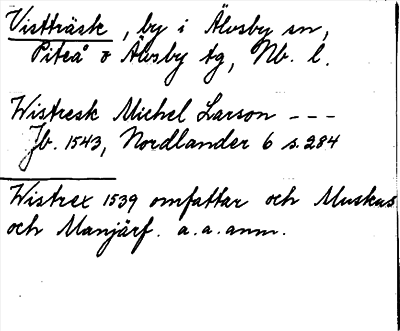 Vistträsk, by i Älvsby sn,
Piteå o Älvsby tg, Nb. l.
Wistresk Michel Larson ---
Jb. 1543, Nordlander 6 s. 284
Wistrex 1539 omfattar och Muskus
och Manjärf. a.a. anm.